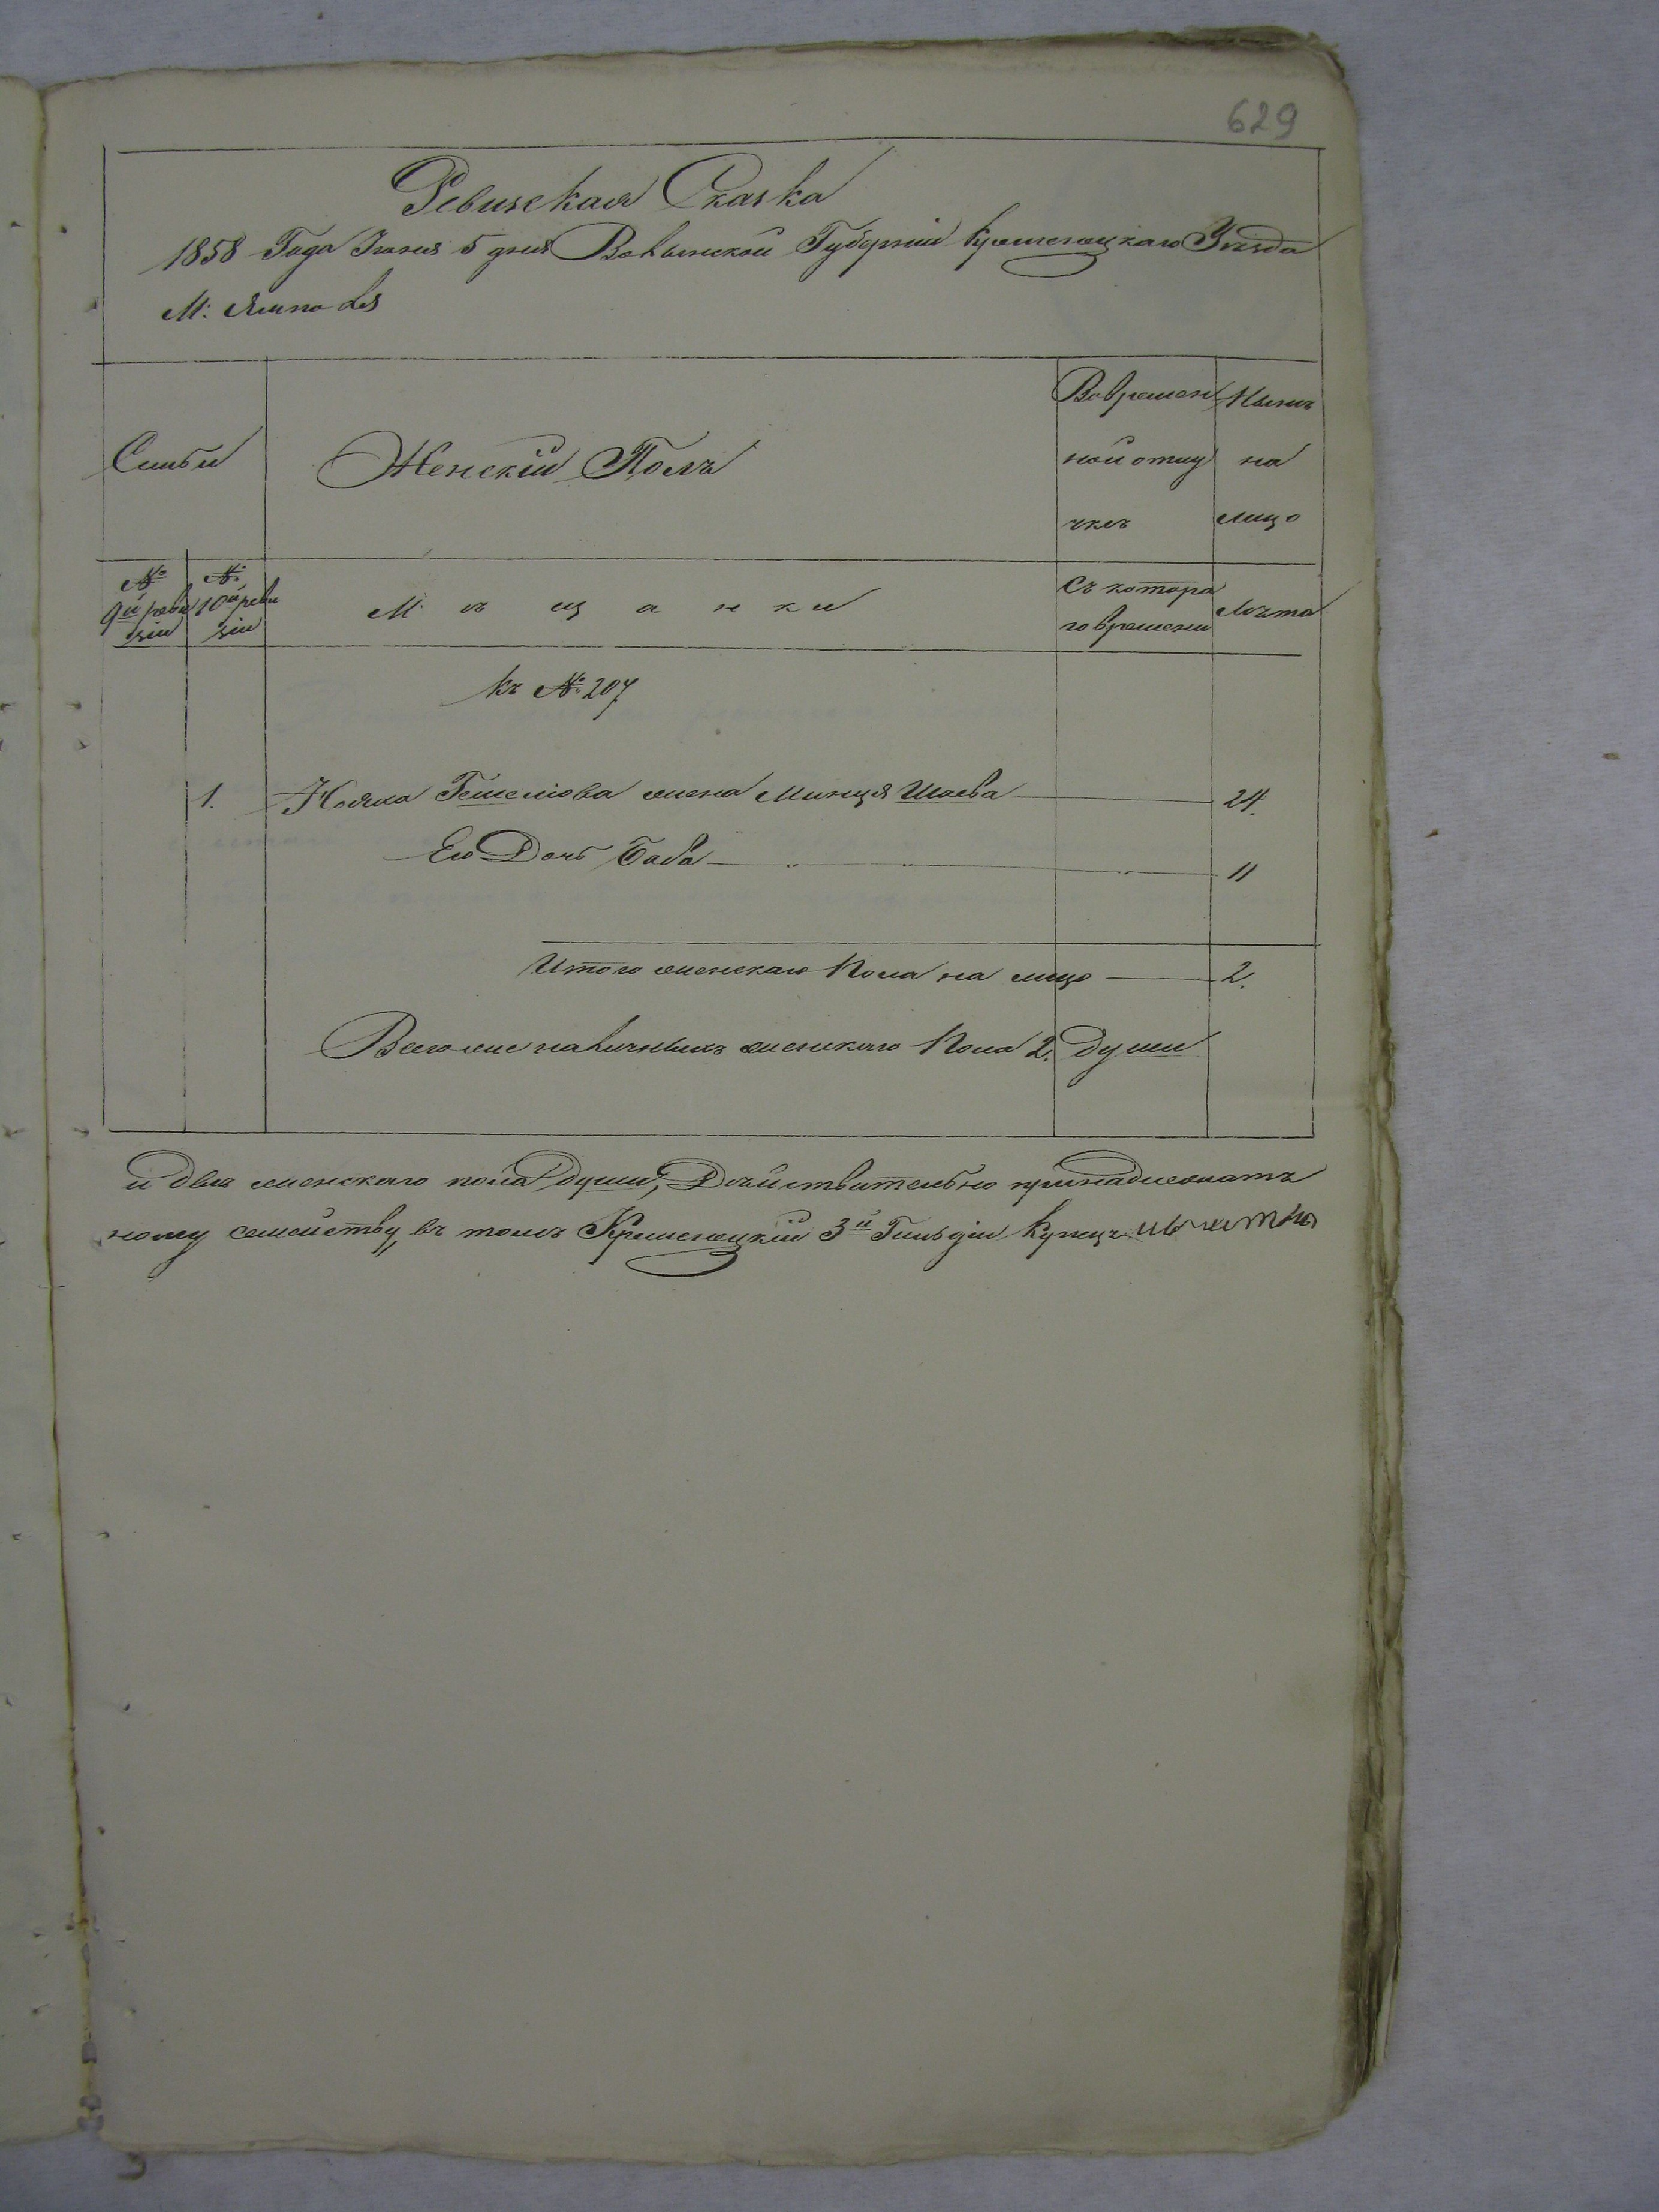 629
Ревизская Сказка
1858 Года Іюня 5 дня Волынской Губерніи Кременецкаго Уѣзда
М: Ямполя
Семьи
Женскій Полъ
Во времен
ной отлу
чкѣ
Нынѣ
на
лицо
№ 9й реви
зіи
№ 10й реви
зіи
Мѣщанки
Съ котора
го времени
Лѣта
къ № 207
1. Гошелiова жена Минця Шаева 24.
Его Дочь Баба 11
Итого женскаго Пола на лицо 2.
Всего же наличныхъ женскаго Пола 2. души
и двѣ женскаго пола души, Дѣйствительно принадлежатъ
ному семейству, въ томъ Кременецкій 3й Гильдіи Купецъ